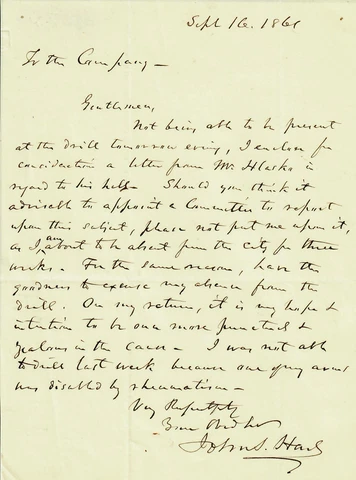 Sept 16. 1861
To the Company —
Gentlemen,
Not being able to be present
at the drill tomorrow eveng, I enclose for
consideration a letter from Mr Hlasko in
regard to his hall — Should you think it
advisable to appoint a Committee to report
upon this subject, please not put me upon it,
as I am about to be absent from the city for three
weeks. For the same reason, have the
goodness to excuse my absence from the
drill. On my return, it is my hope &
intention to be once more punctual &
zealous in the cause — I was not able
to drill last week because one of my arms
was disabled by rheumatism —
Very Respectfully
Your Obed
John S. Hart